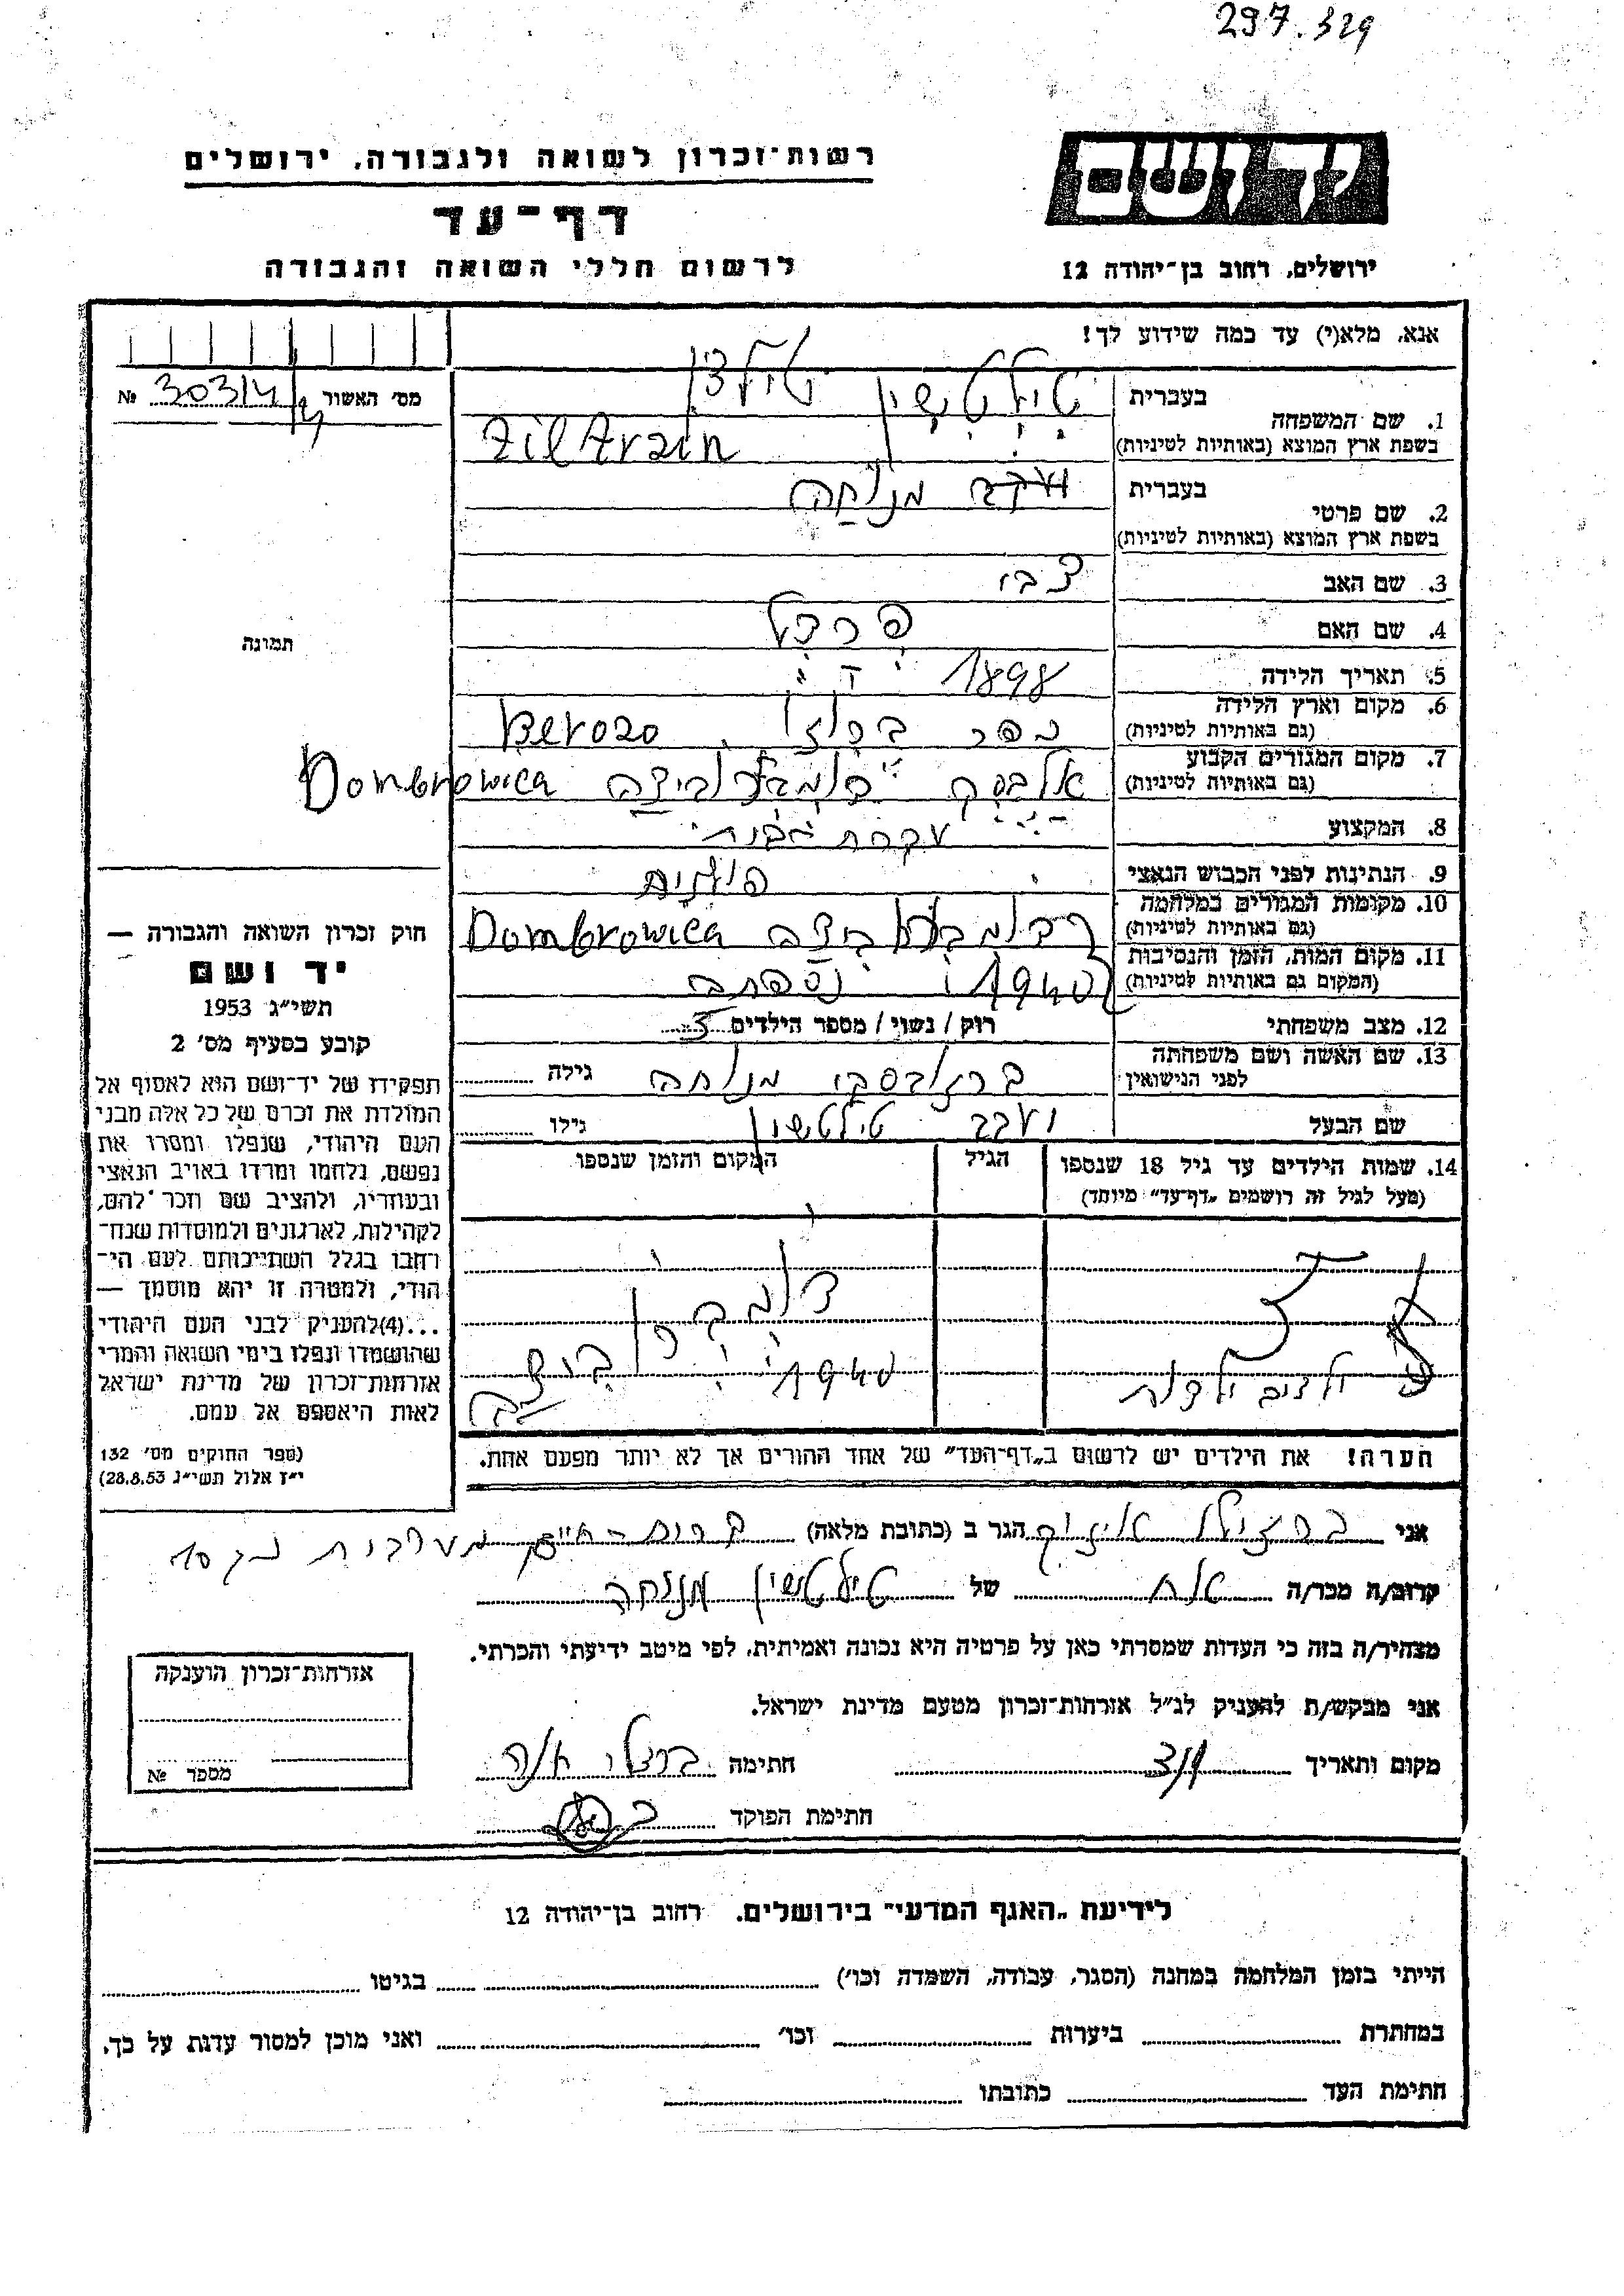 297.329
רשות־זכרון לשואה ולגבורה, ירושלים
יד ושם
דף־עד
לרשום חללי השואה והגבורה
ירושלים, רחוב בן־יהודה 12
אנא, מלא(י) עד כמה שידוע לך!
מס' האשור № 303/4
1. שם המשפחה
בעברית טילטשין
בשפת ארץ המוצא (באותיות לטיניות)
2. שם פרטי
בעברית מנוחה
בשפת ארץ המוצא (באותיות לטיניות)
3. שם האב צבי
4. שם האם פרצל
תמונה
5. תאריך הלידה 1898
6. מקום וארץ הלידה
(גם באותיות לטיניות) כפר Berozo
7. מקום המגורים הקבוע
(גם באותיות לטיניות) Dombrowica
8. המקצוע עקרת הבית
9. הנתינות לפני הכבוש הנאצי פולנית
10. מקומות המגורים במלחמה
(גם באותיות לטיניות) Dombrowica
11. מקום המות, הזמן והנסיבות
(המקום גם באותיות לטיניות) 1940 נספתה
12. מצב משפחתי רוק / נשוי / מספר הילדים 3
13. שם האשה ושם משפחתה
לפני הנישואין מנוחה גילה
שם הבעל יעקב טילטשין גילו
14. שמות הילדים עד גיל 18 שנספו
(מעל לגיל זה רושמים „דף־עד” מיוחד)
הגיל
המקום והזמן שנספו
3
ילדים
1940
הערה! את הילדים יש לרשום ב„דף־העד” של אחד ההורים אך לא יותר מפעם אחת.
חוק זכרון השואה והגבורה —
יד ושם
תשי״ג 1953
קובע בסעיף מס' 2
תפקידו של יד־ושם הוא לאסוף אל
המולדת את זכרם של כל אלה מבני
העם היהודי, שנפלו ומסרו את
נפשם, נלחמו ומרדו באויב הנאצי
ובעוזריו, ולהציב שם וזכר להם,
לקהילות, לארגונים ולמוסדות שנח־
רבו בגלל השתייכותם לעם הי־
הודי, ולמטרה זו יהא מוסמך —
...(4)להעניק לבני העם היהודי
שהושמדו ונפלו בימי השואה והמרי
אזרחות־זכרון של מדינת ישראל
לאות היאספם אל עמם.
(ספר החוקים מס' 132
י״ז אלול תשי״ג 28.8.53)
אני הגר ב (כתובת מלאה)
קרוב/ה מכר/ה של טילטשין מנוחה
מצהיר/ה בזה כי העדות שמסרתי כאן על פרטיה היא נכונה ואמיתית, לפי מיטב ידיעתי והכרתי.
אני מבקש/ת להעניק לנ״ל אזרחות־זכרון מטעם מדינת ישראל.
מקום ותאריך חתימה
חתימת הפוקד
אזרחות־זכרון הוענקה
מספר №
לידיעת „האגף המדעי” בירושלים, רחוב בן־יהודה 12
הייתי בזמן המלחמה במחנה (הסגר, עבודה, השמדה וכו') בגיטו
במחתרת ביערות וכו' ואני מוכן למסור עדות על כך.
חתימת העד כתובתו